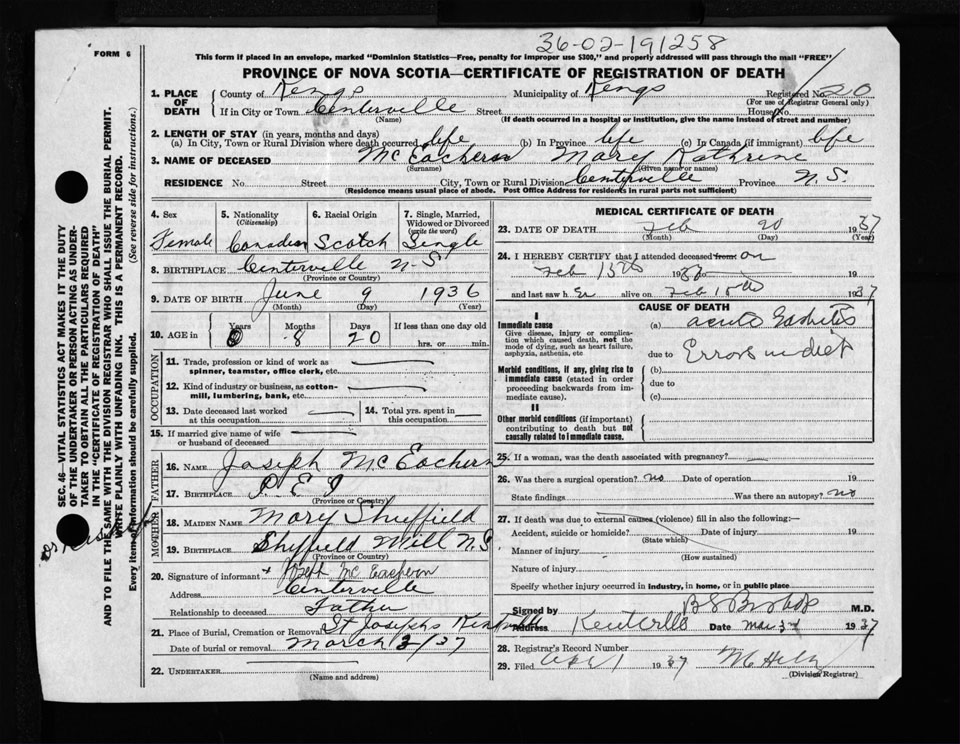 36-02-191258
FORM 6
This form if placed in an envelope, marked "Dominion Statistics—Free, penalty for improper use $300," and properly addressed will pass through the mail "FREE"
PROVINCE OF NOVA SCOTIA—CERTIFICATE OF REGISTRATION OF DEATH
1. PLACE OF DEATH
County of Kengs Municipality of Kengs Registered No. 20
(For use of Registrar General only)
If in City or Town Centerville Street House No.
(Name) (If death occurred in a hospital or institution, give the name instead of street and number)
2. LENGTH OF STAY (in years, months and days)
(a) In City, Town or Rural Division where death occurred life (b) In Province life (c) In Canada (if immigrant) life
3. NAME OF DECEASED McEachern Mary Kathrine
(Surname) (Given name or names)
RESIDENCE No. Street City, Town or Rural Division Centerville Province N.S.
(Residence means usual place of abode. Post Office Address for residents in rural parts not sufficient)
4. Sex
Female
5. Nationality
(Citizenship)
Canadian
6. Racial Origin
Scotch
7. Single, Married, Widowed or Divorced
(write the word)
Single
8. BIRTHPLACE Centerville N-S
(Province or Country)
9. DATE OF BIRTH June 9 1936
(Month) (Day) (Year)
10. AGE in
Years Months Days If less than one day old
0 8 20 hrs. or min.
OCCUPATION
11. Trade, profession or kind of work as
spinner, teamster, office clerk, etc.
12. Kind of industry or business, as cotton-
mill, lumbering, bank, etc.
13. Date deceased last worked
at this occupation
14. Total yrs. spent in
this occupation
15. If married give name of wife
or husband of deceased
FATHER
16. NAME Joseph McEachern
17. BIRTHPLACE P.E.I
(Province or Country)
MOTHER
18. MAIDEN NAME Mary Sheffield
19. BIRTHPLACE Sheffield Mill N.S
(Province or Country)
20. Signature of informant + Joseph McEachern
Address Centerville
Relationship to deceased Father
21. Place of Burial, Cremation or Removal St Josephs Kentville
Date of burial or removal March 3/37
22. UNDERTAKER
(Name and address)
MEDICAL CERTIFICATE OF DEATH
23. DATE OF DEATH Feb 20 1937
(Month) (Day) (Year)
24. I HEREBY CERTIFY that I attended deceased from: on
Feb 15th 1937 to 19
and last saw her alive on Feb 15th 1937
CAUSE OF DEATH
I
Immediate cause
Give disease, injury or complica-
tion which caused death, not the
mode of dying, such as heart failure,
asphyxia, asthenia, etc
(a) acute Gastritis
due to Errors in diet
Morbid conditions, if any, giving rise to
immediate cause (stated in order
proceeding backwards from im-
mediate cause).
(b)
due to
(c)
II
Other morbid conditions (if important)
contributing to death but not
causally related to immediate cause.
25. If a woman, was the death associated with pregnancy?
26. Was there a surgical operation? no Date of operation 19
State findings Was there an autopsy? no
27. If death was due to external causes (violence) fill in also the following:—
Accident, suicide or homicide? Date of injury 19
(State which)
Manner of injury
(How sustained)
Nature of injury
Specify whether injury occurred in industry, in home, or in public place
Signed by B S Bishop M.D.
Address Kentville Date Mar 3rd 1937
28. Registrar's Record Number
29. Filed Apr 1 1937
(Division Registrar)
SEC. 46—VITAL STATISTICS ACT MAKES IT THE DUTY
OF THE UNDERTAKER OR PERSON ACTING AS UNDER-
TAKER TO OBTAIN ALL THE PARTICULARS REQUIRED
IN THE "CERTIFICATE OF REGISTRATION OF DEATH"
AND TO FILE THE SAME WITH THE DIVISION REGISTRAR WHO SHALL ISSUE THE BURIAL PERMIT.
WRITE PLAINLY WITH UNFADING INK. THIS IS A PERMANENT RECORD.
Every item of information should be carefully supplied. (See reverse side for instructions.)